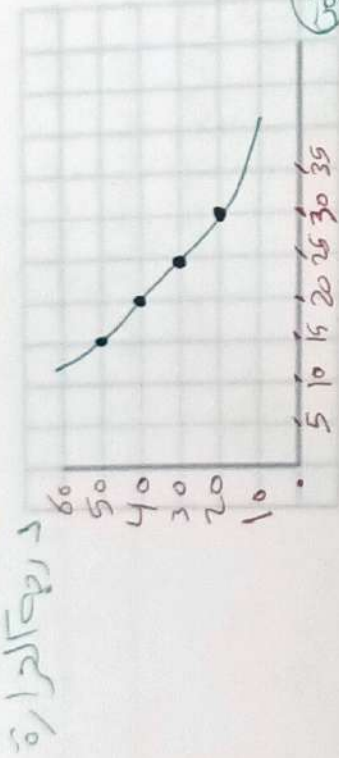 درجة الحرارة
60
50
40
30
20
10
5 10 15 20 25 30 35